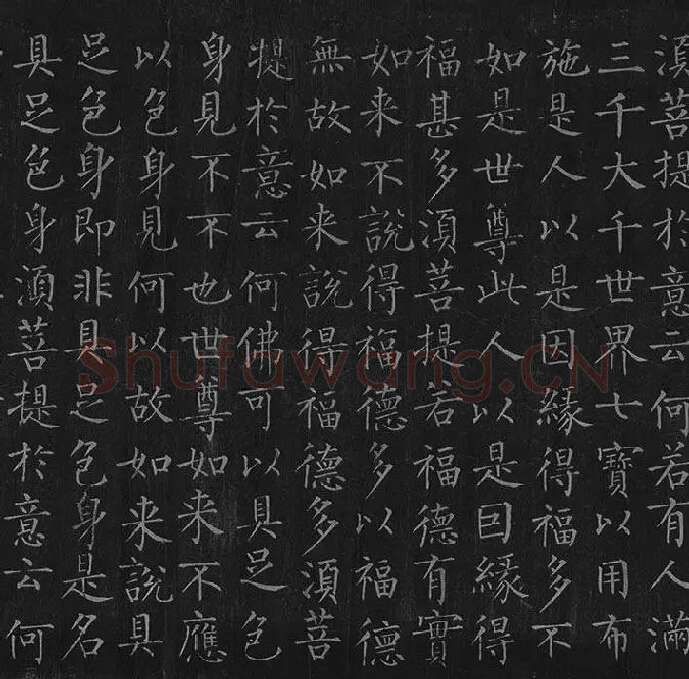 須菩提於意云何若有人滿
三千大千世界七寶以用布
施是人以是因緣得福多不
如是世尊此人以是因緣得
福甚多須菩提若福德有實
如来不說得福德多以福德
無故如来說得福德多須菩
提於意云何佛可以具足色
身見不不也世尊如来不應
以色身見何以故如来說具
足色身即非具足色身是名
具足色身須菩提於意云何
Shufawang.CN